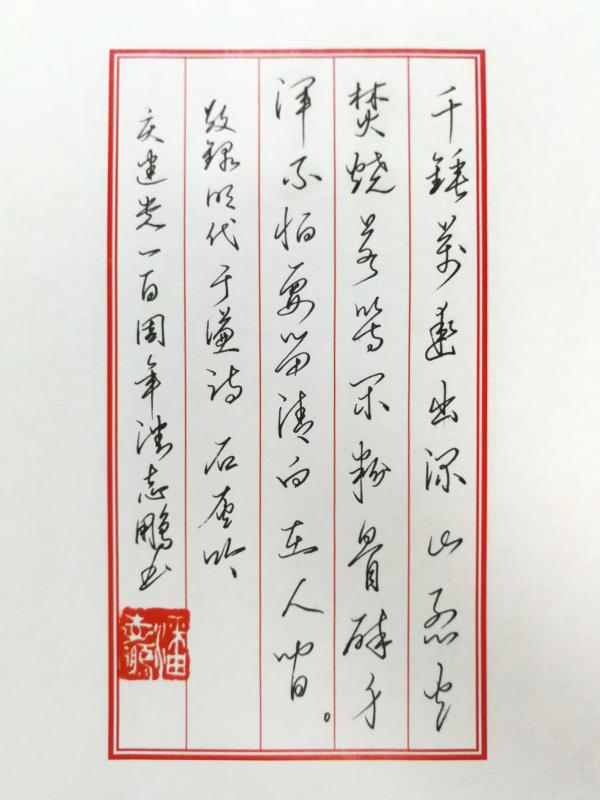 千锤万凿出深山烈火
焚烧若等闲粉骨碎身
浑不怕要留清白在人间。
敬录明代于谦诗石灰吟
庆建党一百周年潘志鹏书
潘志鹏